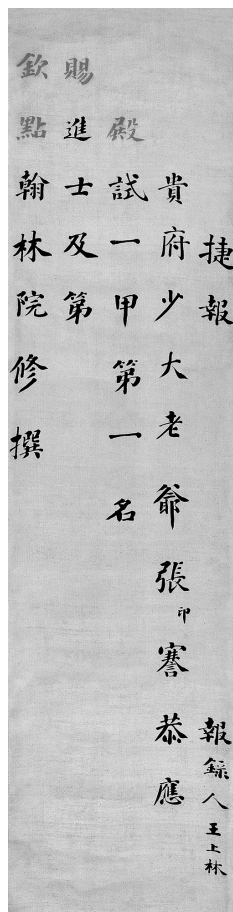 捷報
貴府少大老爺張印謇恭應
殿試一甲第一名
賜進士及第
欽點翰林院修撰
報錄人王上林